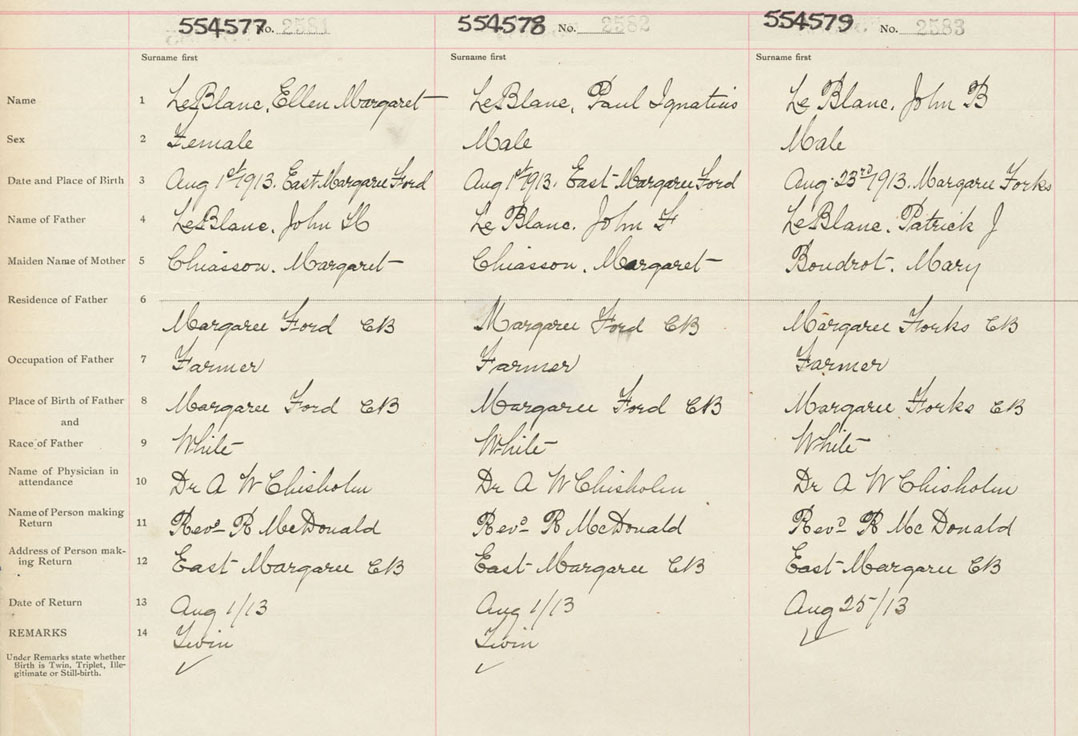 554577 No. 2581 554578 No. 2582 554579 No. 2583
Surname first Surname first Surname first
Name 1 LeBlanc, Ellen Margaret LeBlanc, Paul Ignatius Le Blanc, John B
Sex 2 Female Male Male
Date and Place of Birth 3 Aug 1st 1913. East Margaree Ford Aug 1st 1913. East Margaree Ford Aug 23rd 1913. Margaree Forks
Name of Father 4 LeBlanc, John Le Blanc, John F LeBlanc, Patrick J
Maiden Name of Mother 5 Chiasson, Margaret Chiasson, Margaret Boudrot, Mary
Residence of Father 6
Margaree Ford CB Margaree Ford CB Margaree Forks CB
Occupation of Father 7 Farmer Farmer Farmer
Place of Birth of Father 8 Margaree Ford CB Margaree Ford CB Margaree Forks CB
and
Race of Father 9 White White White
Name of Physician in
attendance 10 Dr A W Chisholm Dr A W Chisholm Dr A W Chisholm
Name of Person making
Return 11 Revd R McDonald Revd R McDonald Revd R McDonald
Address of Person mak-
ing Return 12 East Margaree CB East Margaree CB East Margaree CB
Date of Return 13 Aug 1/13 Aug 1/13 Aug 25/13
REMARKS 14 Twin Twin
Under Remarks state whether
Birth is Twin, Triplet, Ille-
gitimate or Still-birth.